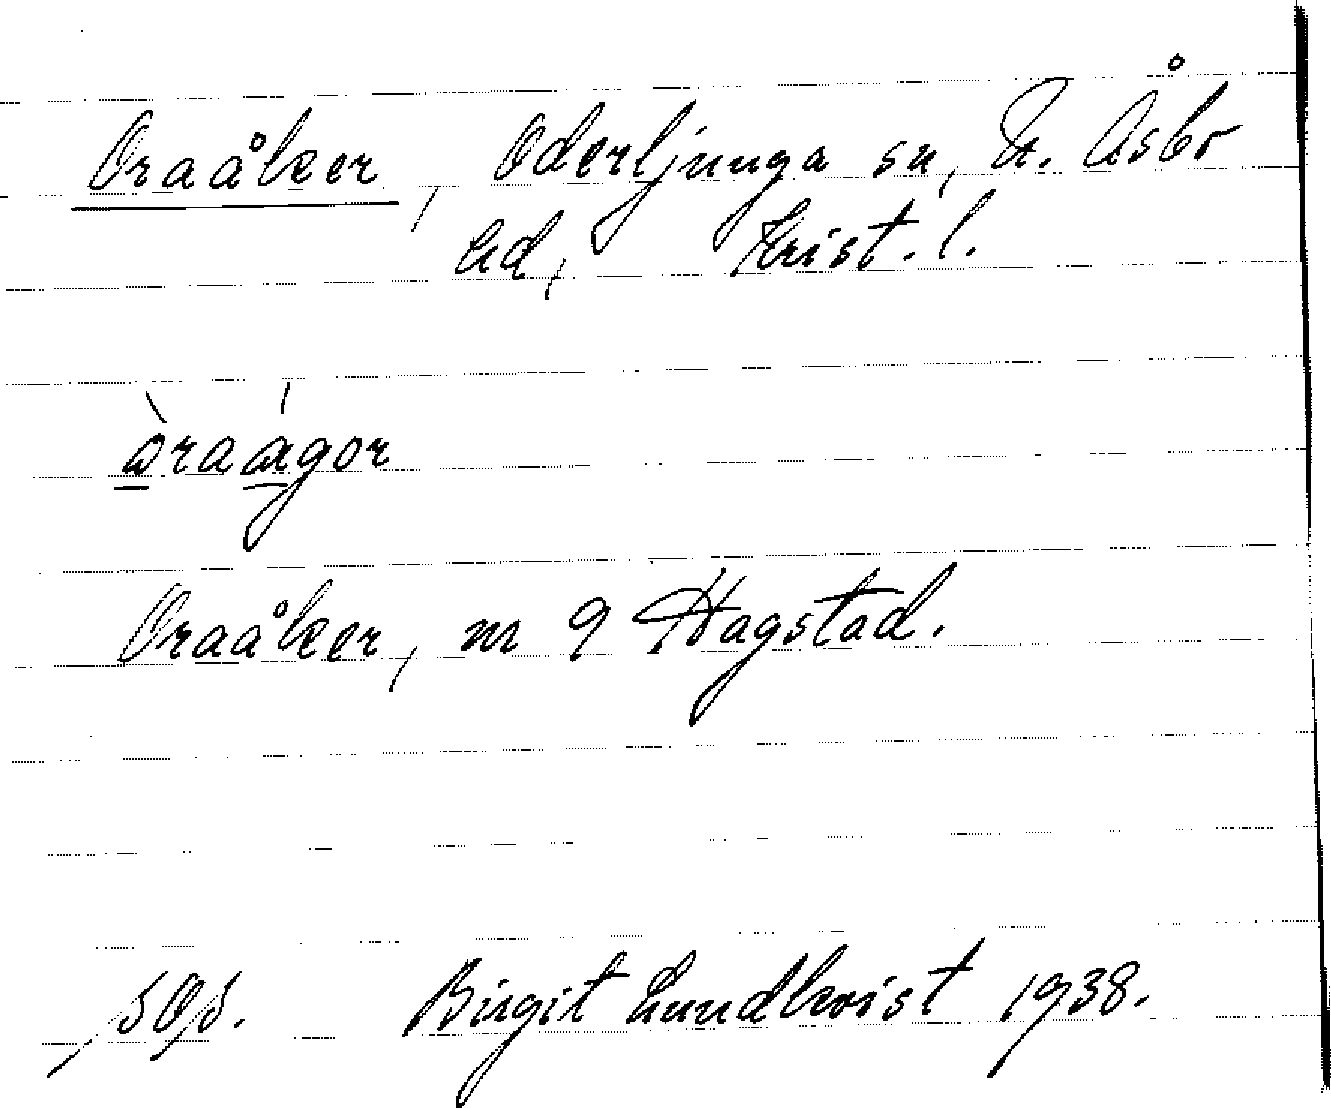 Oraåker, Oderljunga sn, N. Åsbo
hd, Krist. l.
òraágor
Oraåker, nr 9 Hagstad.
Birgit Lundkvist 1938.